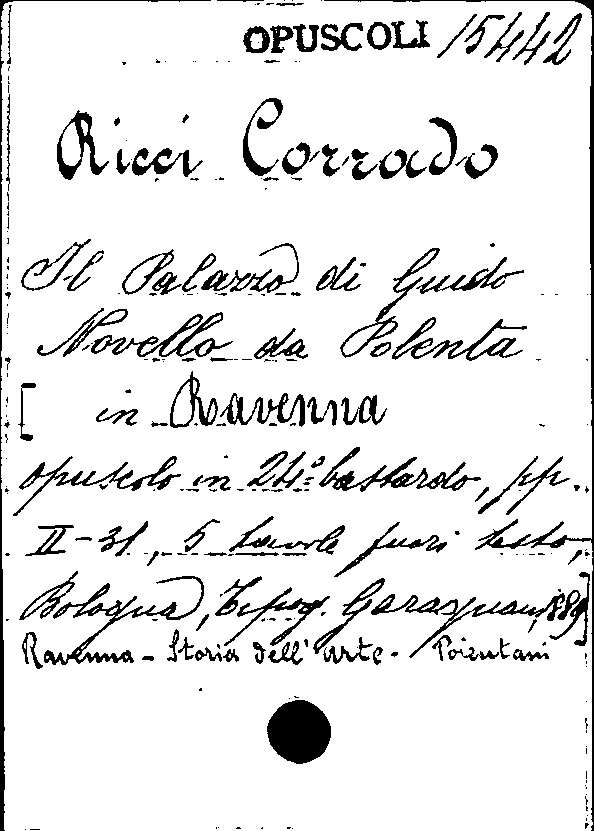 OPUSCOLI 15442
Ricci Corrado
Il Palazzo di Guido
Novello da Polenta
[ in Ravenna
opuscolo in 24º bastardo, pp.
II-31, 5 tavole fuori testo,
Bologna, Tipog. Garagnani, 1889]
Ravenna - Storia dell' arte -